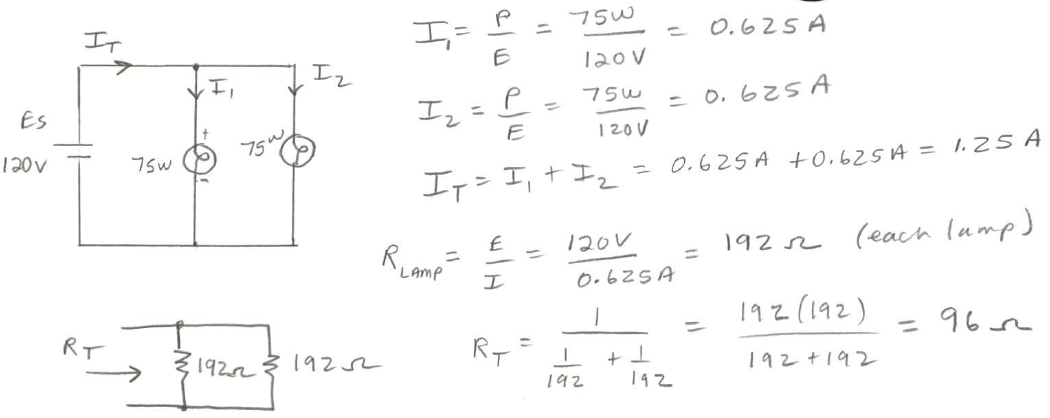 I_T
I_1
I_2
Es
120V
75W
75W
+
-
I_1 = P/E = 75W/120V = 0.625 A
I_2 = P/E = 75W/120V = 0.625 A
I_T = I_1 + I_2 = 0.625A + 0.625A = 1.25 A
R_LAMP = E/I = 120V/0.625A = 192 Ω (each lamp)
R_T
192Ω
192Ω
R_T = 1/(1/192 + 1/192) = 192(192)/(192+192) = 96 Ω